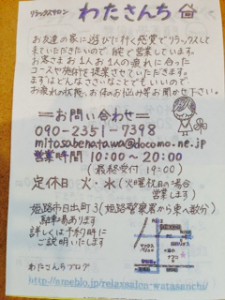 リラックスサロン わたさんち
お友達の家に遊びに行く感覚でリラックスして
来ていただきたいので、自宅で営業しています。
お客さまお1人お1人の疲れに合った
コースや施術を提案させていただきます。
まずはどんなささいなことでもいいので
お疲れの状態、お体のお悩み等お聞かせ下さい。
==お問い合わせ==
090-2351-7398
mitosabenatawa@docomo.ne.jp
営業時間 10:00～20:00
(最終受付 19:00)
定休日 火・水 (火曜祝日の場合
営業します)
姫路市日出町3 (姫路警察署から東へ数分)
駐車場あります
詳しくは予約時に
ご説明いたします
わたさんちブログ
http://ameblo.jp/relaxsalon-watasanchi/